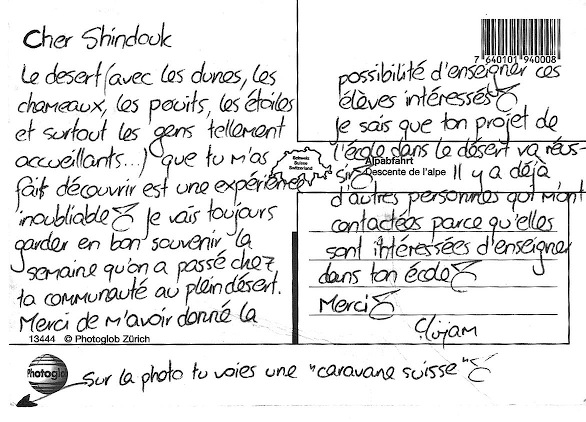 Cher Shindouk
Le desert (avec les dunes, les
chameaux, les pouits, les étoiles
et surtout les gens tellement
accueillants...) que tu m'as
fait découvrir est une expérience
inoubliable Je vais toujours
garder en bon souvenir la
semaine qu'on a passé chez
ta communauté au plein désert.
Merci de m'avoir donné la
possibilité d'enseigner ces
élèves intéressés
Je sais que ton projet de
l'école dans le désert va réus-
sir Il y a déjà
d'autres personnes qui m'ont
contactées parce qu'elles
sont intéressées d'enseigner
dans ton école
Merci
sur la photo tu voies une "caravane suisse"
7 640101 940008
Schweiz
Suisse
Switzerland
Alpabfahrt
Descente de l'alpe
13444 © Photoglob Zürich
Photoglob